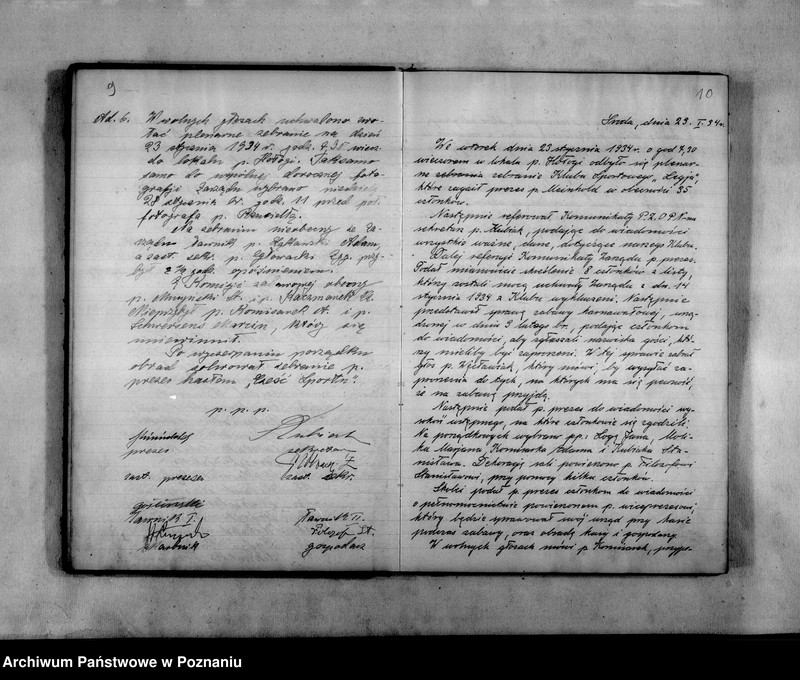 9
Ad. 6. W wolnych głosach uchwalono zwo-
łać plenarne zebranie na dzień
23 stycznia 1934 r. godz. 7,30 wiecz.
do lokalu p. Hełłogi. Takssamo
samo do wspólnej dorocznej foto-
grafji Zarządu wybrano niedzielę
28 stycznia br. godz. 11 przed poł.
fotografa p.
Na zebraniu nieobecny ze Za-
rządu ławnik p. Adam,
a zast. sekr. p. przy-
był z godz. opóźnieniem.
Z Komisji zabawowej obecny
p. St. i p. Kaczmarek
Nieprzybył p. Komisarek A. i p.
Marcin, który się
uniewinnił.
Po wyczerpaniu porządku
obrad solwował zebranie p.
prezes hasłem „Cześć Sportu”.
p. p. p.
Kubiak
prezes
sekretarz
zast. prezesa
zast. sekr.
Ławnik I.
Ławnik II.
Filozof St.
Ławnik
gospodarz
10
Środa, dnia 23. I. 34 r.
We wtorek dnia 23 stycznia 1934 r. o god 7,30
wieczorem w lokalu p. Hełłogi odbyło się plenar-
ne zebrania zebranie Klubu Sportowego „Legja”,
które zagaił prezes p. Meinhold w obecności 35
członków.
Następnie referował Komunikaty P.Z.O.P.N-u
sekretarz p. Kubiak, podając do wiadomości
wszystkie ważne, dane, dotyczące naszego Klubu.
Dalej referuje Komunikaty Zarządu p. prezes.
Podał mianowicie skreślenie 8 członków z listy,
którzy zostali mocą uchwały Zarządu z dn. 14
stycznia 1934 z Klubu wykluczeni. Następnie
przedstawił sprawę zabawy karnawałowej, urzą-
dzonej w dniu 3 lutego br., podając członkom
do wiadomości, aby zgłaszali nazwiska gości, któ-
rzy mieliby być zaproszeni. W tej sprawie zabrał
głos p. Wjeławiak, który mówi, by wysyłać za-
proszenia do tych, na których ma się pewność,
że na zabawę przyjdą.
Następnie podał p. prezes do wiadomości wy-
sokość wstępnego, na które członkowie się zgodzili.
Na porządkowych wybrano pp.: Jana, Moli-
ka Marjana, Komisarka Adama i Kubiaka Sta-
nisława. Dekorację sali powierzono p. Filozofowi
Stanisławowi, przy pomocy kilku członków.
podał p. prezes członkom do wiadomości
o pełnomocnictwie powierzonem p. wiceprezesowi,
który będzie sprawował swój urząd przy kasie
podczas zabawy, oraz obradę kasy i gospodarzy.
W wolnych głosach mówi p. Komisarek, przypo-
Archiwum Państwowe w Poznaniu